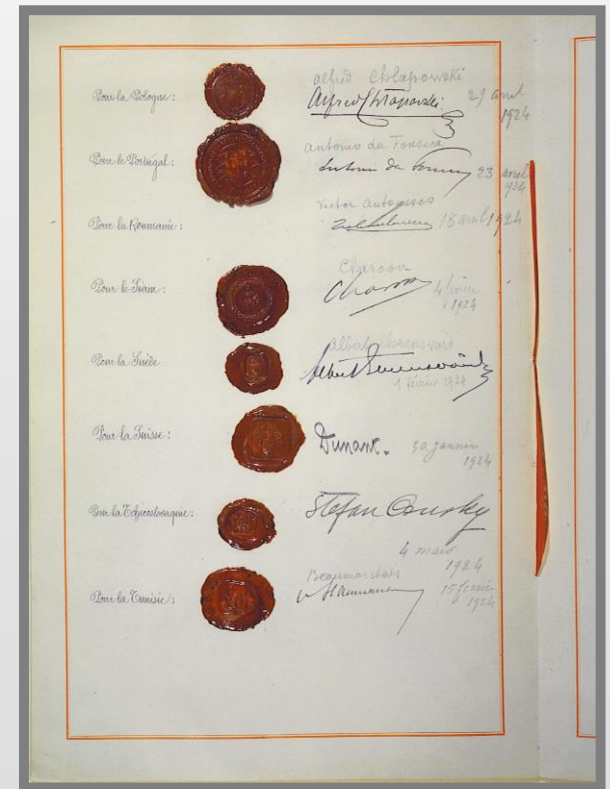 Pour la Pologne :
alfred Chlapowski
Alfred Chlapowski
29 avril
1924
Pour le Portugal :
antonio da Fonseca
Antonio da Fonseca
23 avril
1924
Pour la Roumanie :
Victor Antonesco
18 avril 1924
Pour le Siam :
Charoon
Charoon
4 février
1924
Pour la Suède
Albert Ehrensvard
Albert Ehrensvärd
1 février 1924
Pour la Suisse :
Dunant.
30 janvier
1924
Pour la Tchécoslovaquie :
Stefan Osusky
4 mars
1924
Pour la Tunisie :
Beaumarchais
15 février
1924